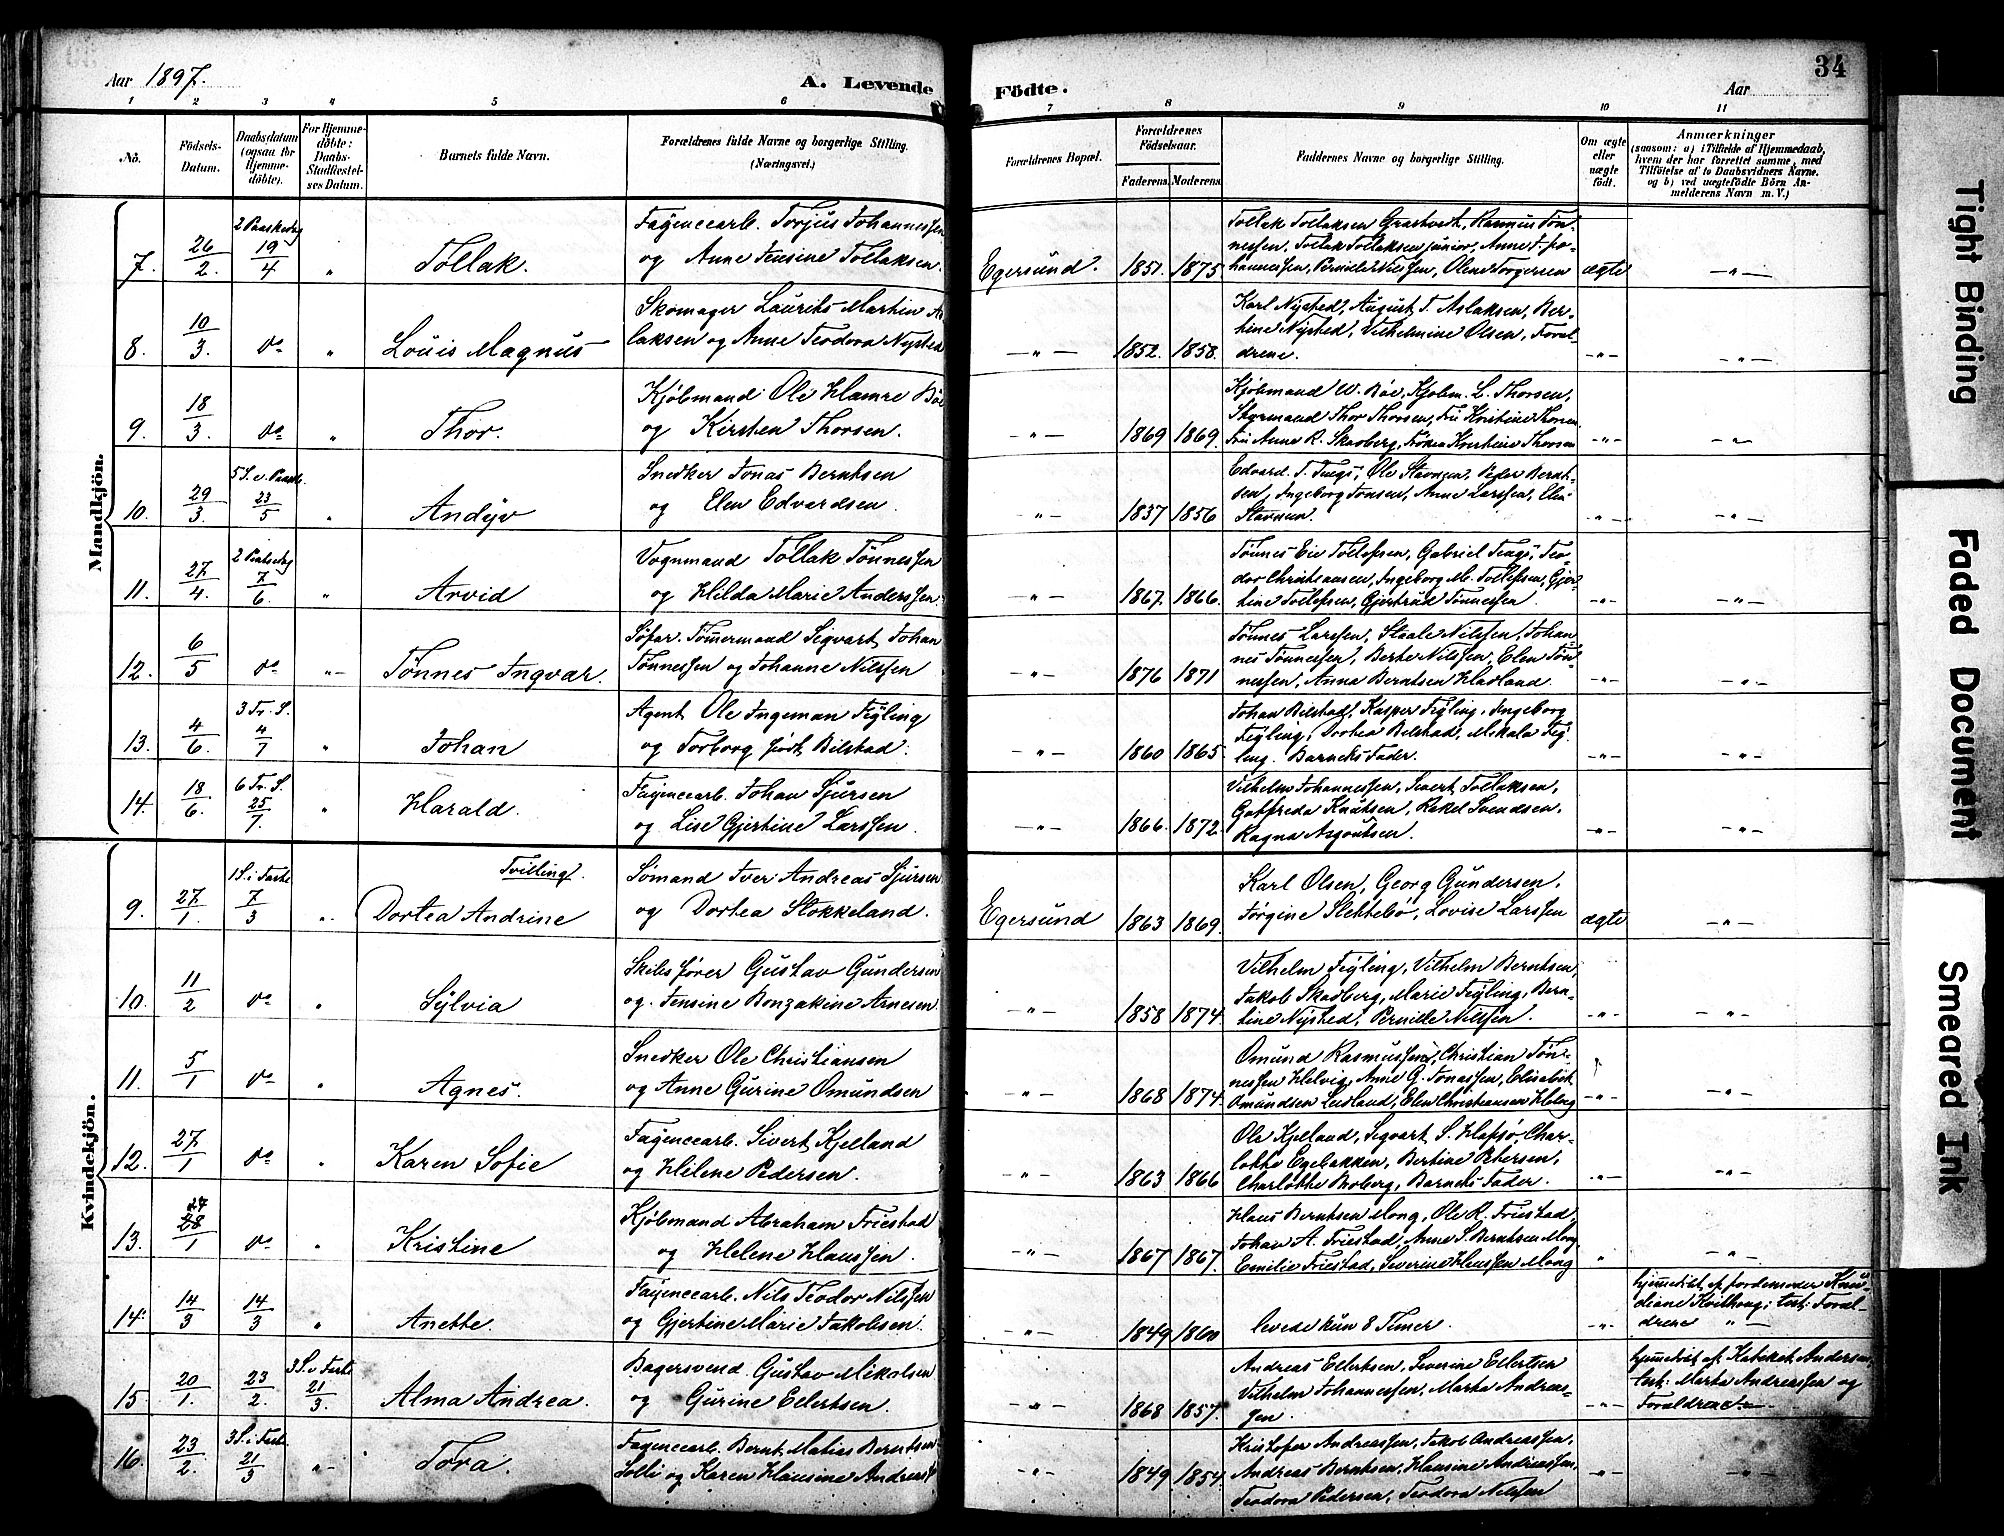 Aar 1897.
A. Levende
Fødte.
34
Aar
1 2 3 4 5 6 7 8 9 10 11
No.
Fødsels-
Datum.
Daabsdatum
(ogsaa for
Hjemme-
døbte).
For Hjemme-
døbte:
Daabs-
Stadfæstel-
ses Datum.
Barnets fulde Navn.
Forældrenes fulde Navne og borgerlige Stilling.
(Næringsvei.)
Forældrenes Bopæl.
Forældrenes
Fødselsaar.
Faderens. Moderens.
Faddernes Navne og borgerlige Stilling.
Om ægte
eller
uægte
født.
Anmærkninger
(saasom: a) i Tilfælde af Hjemmedaab,
hvem der har forrettet samme, med
Tilføielse af to Daabsvidners Navne.
og b) ved uægtefødte Børn An-
melderens Navn m. V.)
Mandkjøn.
7. 26/2. 2 Paaskedag 19/4 " Tollak.
Fayencearb. Torjus Johannessen
og Anne Jensine Tollaksen.
Egersund. 1851. 1875
Tollak Tollaksen Grastveit, Rasmus Tøn-
nessen, Tollak Tollaksen junior, Anne T. Jo-
hannessen, Pernille Nilssen, Olene Torgersen
ægte -"-
8. 10/3. do " Louis Magnus
Skomager Laurits Martin As-
laksen og Anne Teodora Nysted
-"- 1852. 1858.
Karl Nysted, August T. Aslaksen, Ber-
tine Nysted, Vilhelmine Olsen, Foræl-
drene.
-"- -"-
9. 18/3. do " Thor.
Kjøbmand Ole Hamre Bøe
og Kirsten Thorsen.
-"- 1869 1869.
Kjøbmand W. Bøe, Kjøbm. L. Thorsen,
Styrmand Thor Thorsen, Fru Kristine Thorsen
Fru Anne R. Skadberg, Frøken Kristine Thorsen
-"- -"-
10. 29/3. 5 S. e. Paask. 23/5 " Andyv
Snedker Jonas Berntsen
og Elen Edvardsen
-"- 1837 1856
Edvard T. Tengs, Ole Stavnem, Peder Bernt-
sen, Ingeborg Jonsen, Anne Larssen, Elen
Stavnem.
-"- -"-
11. 27/4. 2 Pintsedag 7/6. " Arvid
Vognmand Tollak Tønnessen
og Hilda Marie Anderssen.
-"- 1867. 1866.
Tønnes Eie Tollefsen, Gabriel Tengs, Teo-
dor Christiansen, Ingeborg M. Tollefsen, Gjer-
tine Tollefsen, Gjertrud Tønnessen.
-"- -"-
12. 6/5 do -"- Tønnes Ingvar.
Søfar. Tømmermand Sigvart Johan
Tønnessen og Johanne Nilssen
-"- 1876 1871
Tønnes Larssen, Staale Nilssen, Johan-
nes Tønnessen, Berte Nilssen, Elen Tøn-
nessen, Anna Berntsen Hadland.
-"- -"-
13. 4/6. 3 Tr. S. 4/7 " Johan
Agent Ole Ingeman Feyling
og Torborg født Bilstad.
-"- 1860 1865
Johan Bilstad, Kasper Feyling, Ingeborg
Feyling, Dortea Bilstad, Mikala Fey-
ling. Barnets Fader.
-"- -"-
14. 18/6. 6 Tr. S. 25/7. " Harald.
Fayencearb. Johan Sjursen
og Lise Gjertine Larssen.
-"- 1866. 1872.
Vilhelm Johannessen, Sivert Tollaksen,
Gotfreda Knutsen, Rakel Svendsen,
Ragna Asgoutsen.
-"- -"-
Kvindekjøn.
9. 27/1. 1 S. i Faste 7/3 " Tvilling.
Dortea Andrine
Sømand Iver Andreas Sjursen
og Dortea Stokkeland.
Egersund 1863 1869.
Karl Olsen, Georg Gundersen,
Jørgine Slettebø, Lovise Larssen
ægte -"-
10. 11/2 do " Sylvia
Skibsfører Gustav Gundersen
og Jensine Bonzakine Arnesen
-"- 1858 1874.
Vilhelm Feyling, Vilhelm Berntsen,
Jakob Skadberg, Marie Feyling, Bern-
tine Nysted, Pernille Nilssen.
-"- -"-
11. 5/1 do " Agnes.
Snedker Ole Christiansen
og Anne Gurine Omundsen
-"- 1868 1874.
Omund Rasmussen, Christian Tøn-
nessen Helvig, Anne G. Jonassen, Elisabet
Omundsen Leidland, Elen Christiansen Helvig
-"- -"-
12. 27/1 do " Karen Sofie
Fayencearb. Sivert Kjelland
og Helene Pedersen.
-"- 1863 1866
Ole Kjelland, Sigvart S. Hafsø, Char-
lotte Egebakken, Bertine Petersen,
Charlotte Moberg, Barnets Fader.
-"- -"-
13. 24 28/1 do " Kristine
Kjøbmand Abraham Friestad
og Helene Hanssen.
-"- 1867 1867.
Hans Berntsen Mong, Ole R. Friestad,
Johan A. Friestad, Anne S. Berntsen Mong,
Emilie Friestad, Severine Hanssen Mong
" -"-
14. 14/3 14/3 " Anette.
Fayencearb. Nils Teodor Nilssen
og Gjertine Marie Jakobsen.
-"- 1849 1860
levede kun 8 Timer.
-"-
hjemmedøbt af Jordemoder
Kvilhaug; test: Foræl-
drene -"-
15 20/1. 23/2. 3 S. i Faste 21/3. Alma Andrea.
Bagersvend Gustav Mikalsen
og Gurine Eilertsen.
-"- 1868 1857.
Andreas Eilertsen, Severine Eilertsen
Vilhelm Johannessen, Marta Andreas-
sen.
-"-
hjemmedøbt af Kateket Andersen,
test: Marta Andreassen og
Forældrene -"-
16. 23/2. 3 S. i Faste 21/3 -"- Tora.
Fayencearb. Bernt Matias Berntsen
Solli og Karen Hansine Andreass
-"- 1849 1854
Kristofer Andreassen, Jakob Andreassen,
Andreas Berntsen, Hansine Andreassen,
Teodora Pedersen, Teodora Nilssen
-"- -"-
Tight Binding
Faded Document
Smeared Ink